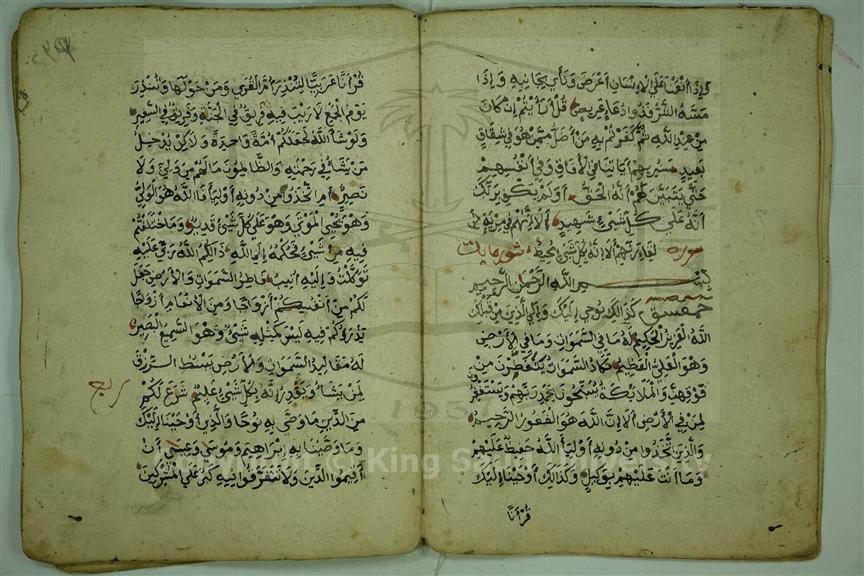 وَإِذَا أَنْعَمْنَا عَلَي الْإِنْسَانِ أَعْرَضَ وَنَأَي بِجَانِبِهِ وَإِذَا
مَسَّهُ الشَّرُّ فَذُو دُعَاءٍ عَرِيضٍ قُلْ أَرَأَيْتُمْ إِنْ كَانَ
مِنْ عِنْدِ اللَّهِ ثُمَّ كَفَرْتُمْ بِهِ مَنْ أَضَلُّ مِمَّنْ هُوَ فِي شِقَاقٍ
بَعِيدٍ سَنُرِيهِمْ أَيَاتِنَا فِي الْأَفَاقِ وَفِي أَنْفُسِهِمْ
حَتَّي يَتَبَيَّنَ لَهُمْ أَنَّهُ الْحَقُّ أَوَلَمْ يَكْفِ بِرَبِّكَ
أَنَّهُ عَلَي كُلِّ شَيْءٍ شَهِيدٌ أَلَا إِنَّهُمْ فِي مِرْيَةٍ مِنْ
لِقَاءِ رَبِّهِمْ أَلَا إِنَّهُ بِكُلِّ شَيْءٍ مُحِيطٌ سورة
بِسْمِ اللَّهِ الرَّحْمَنِ الرَّحِيمِ
حم عسق كَذَلِكَ يُوحِي إِلَيْكَ وَإِلَي الَّذِينَ مِنْ قَبْلِكَ
اللَّهُ الْعَزِيزُ الْحَكِيمُ لَهُ مَا فِي السَّمَوَاتِ وَمَا فِي الْأَرْضِ
وَهُوَ الْعَلِيُّ الْعَظِيمُ تَكَادُ السَّمَوَاتُ يَتَفَطَّرْنَ مِنْ
فَوْقِهِنَّ وَالْمَلَائِكَةُ يُسَبِّحُونَ بِحَمْدِ رَبِّهِمْ وَيَسْتَغْفِرُونَ
لِمَنْ فِي الْأَرْضِ أَلَا إِنَّ اللَّهَ هُوَ الْغَفُورُ الرَّحِيمُ
وَالَّذِينَ اتَّخَذُوا مِنْ دُونِهِ أَوْلِيَاءَ اللَّهُ حَفِيظٌ عَلَيْهِمْ
وَمَا أَنْتَ عَلَيْهِمْ بِوَكِيلٍ وَكَذَالِكَ أَوْحَيْنَا إِلَيْكَ
قُرْأَنًا
قُرْأَنًا عَرَبِيًّا لِتُنْذِرَ أُمَّ الْقُرَي وَمَنْ حَوْلَهَا وَتُنْذِرَ
يَوْمَ الْجَمْعِ لَا رَيْبَ فِيهِ فَرِيقٌ فِي الْجَنَّةِ وَفَرِيقٌ فِي السَّعِيرِ
وَلَوْ شَاءَ اللَّهُ لَجَعَلَكُمْ أُمَّةً وَاحِدَةً وَلَاكِنْ يُدْخِلُ
مَنْ يَشَاءُ فِي رَحْمَتِهِ وَالظَّالِمُونَ مَا لَهُمْ مِنْ وَلِيٍّ وَلَا
نَصِيرٍ أَمِ اتَّخَذُوا مِنْ دُونِهِ أَوْلِيَاءَ فَاللَّهُ هُوَ الْوَلِيُّ
وَهُوَ يُحْيِي الْمَوْتَي وَهُوَ عَلَي كُلِّ شَيْءٍ قَدِيرٌ وَمَا اخْتَلَفْتُمْ
فِيهِ مِنْ شَيْءٍ فَحُكْمُهُ إِلَي اللَّهِ ذَالِكُمُ اللَّهُ رَبِّي عَلَيْهِ
تَوَكَّلْتُ وَإِلَيْهِ أُنِيبُ فَاطِرُ السَّمَوَاتِ وَالْأَرْضِ جَعَلَ
لَكُمْ مِنْ أَنْفُسِكُمْ أَزْوَاجًا وَمِنَ الْأَنْعَامِ أَزْوَاجًا
يَذْرَؤُكُمْ فِيهِ لَيْسَ كَمِثْلِهِ شَيْءٌ وَهُوَ السَّمِيعُ الْبَصِيرُ
لَهُ مَقَالِيدُ السَّمَوَاتِ وَالْأَرْضِ يَبْسُطُ الرِّزْقَ
لِمَنْ يَشَاءُ وَيَقْدِرُ إِنَّهُ بِكُلِّ شَيْءٍ عَلِيمٌ شَرَعَ لَكُمْ
مِنَ الدِّينِ مَا وَصَّي بِهِ نُوحًا وَالَّذِي أَوْحَيْنَا إِلَيْكَ
وَمَا وَصَّيْنَا بِهِ إِبْرَاهِيمَ وَمُوسَي وَعِيسَي أَنْ
أَقِيمُوا الدِّينَ وَلَا تَتَفَرَّقُوا فِيهِ كَبُرَ عَلَي الْمُشْرِكِينَ